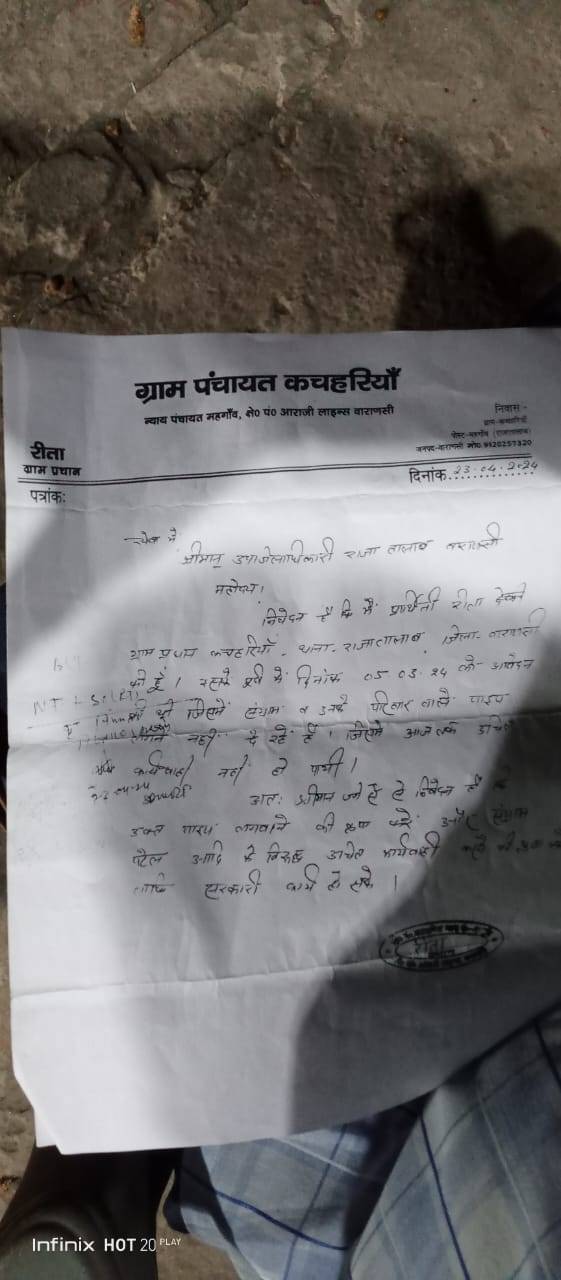 ग्राम पंचायत कचहरियाँ
न्याय पंचायत महगाँव, क्षे० पं० आराजी लाइन्स वाराणसी
निवास-
ग्राम-कचहरियाँ
पोस्ट-महगाँव (राजातालाब)
जनपद-वाराणसी मो० 9120257320
रीता
ग्राम प्रधान
पत्रांक:
दिनांक 23.04.2024
सेवा में
श्रीमान् उपजिलाधिकारी राजा तालाब वाराणसी
महोदय।
निवेदन है कि मैं प्रार्थिनी रीता देवी
ग्राम प्रधान कचहरियाँ थाना-राजातालाब, जिला-वाराणसी
की हूँ। इसके पूर्व में दिनांक 05.03.24 को आवेदन
की जिसमें संग्राम व उनके परिवार वाले पाइप
नहीं दे रहे हैं। जिसमें आज तक उचित
कार्यवाही नहीं हो पायी।
अतः श्रीमान जी से निवेदन है कि
उक्त पाइप लगवाने की कृपा करें और संग्राम
पटेल आदि के विरुद्ध उचित कार्यवाही करने की कृपा करें
ताकि सरकारी कार्य हो सके।
रीता
Infinix HOT 20 PLAY